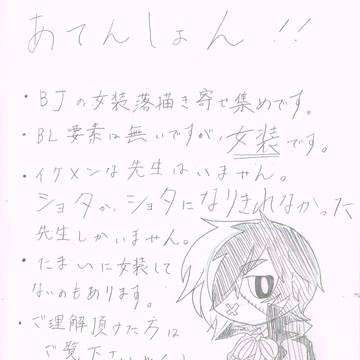 あてんしょん!!
・BJの女装落描き寄せ集めです。
・BL要素は無いですが、女装です。
・イケメンな先生はいません。
ショタか、ショタになりきれなかった
先生しかいません。
・たまいに女装して
ないのもあります。
・ご理解頂けた方は
ご覧下さいませ!